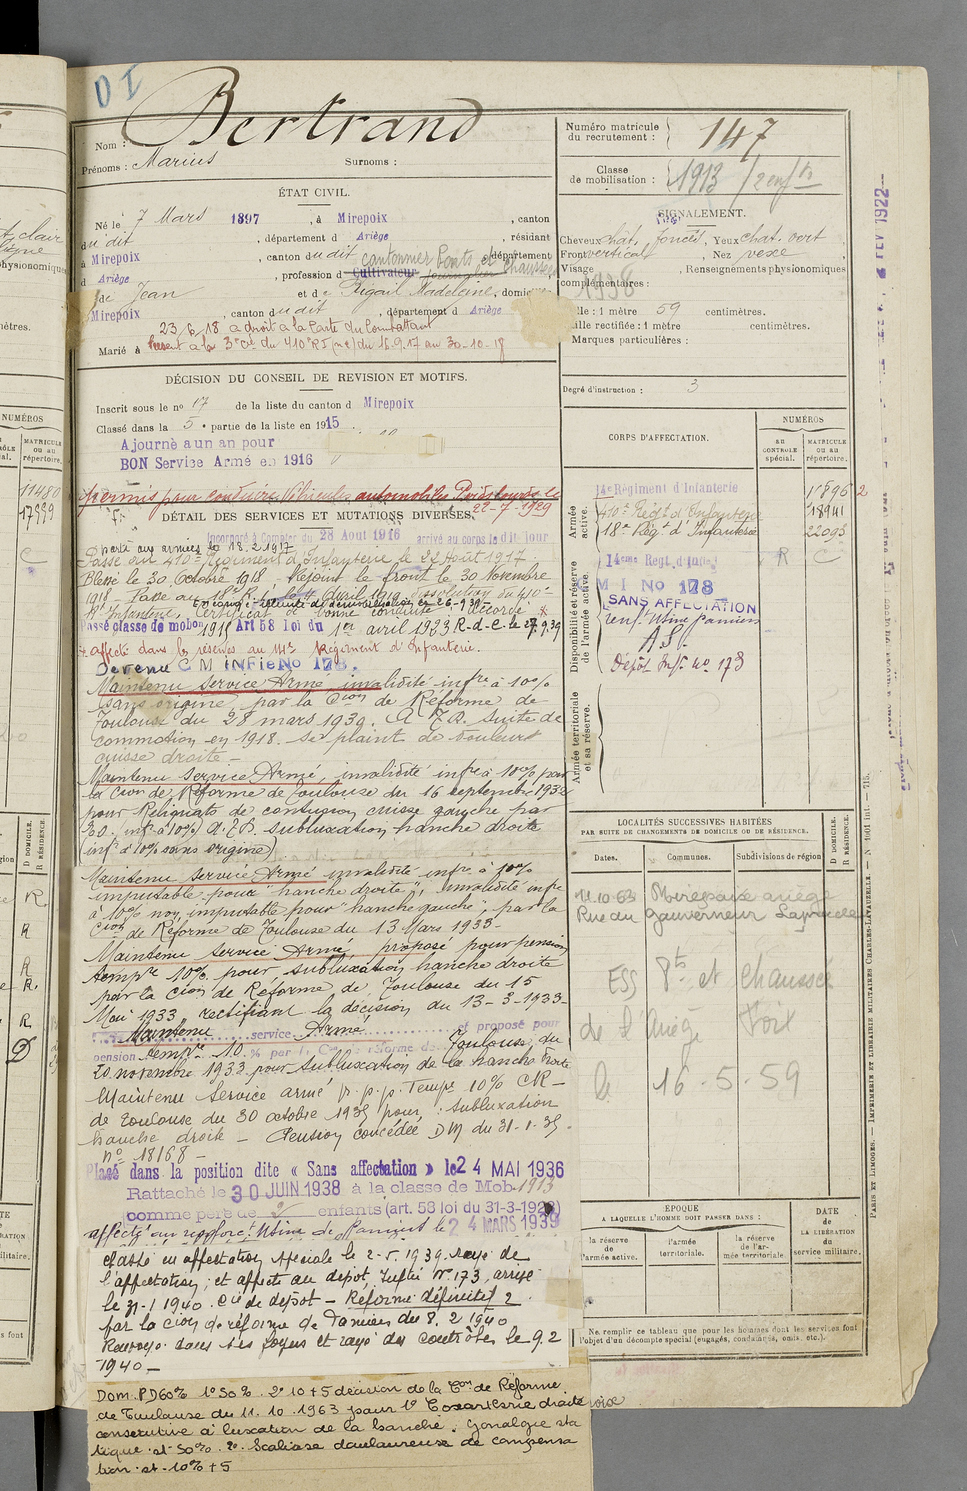 D I
Nom : Bertrand
Prénoms : Marius Surnoms :
ÉTAT CIVIL.
Né le 7 Mars 1897, à Mirepoix, canton
dudit, département d Ariège, résidant
à Mirepoix, canton dudit, département
cantonnier Ponts et Chaussées
d Ariège, profession d Cultivateur journalier
de Jean et de Rigail Madeleine, domiciliés
Mirepoix, canton dudit, département d Ariège
23.6.18 a droit à la Carte du Combattant
Marié à Présent à la 3e Cie du 410e RI (ne) du 16.9.17 au 30-10-18
DÉCISION DU CONSEIL DE REVISION ET MOTIFS.
Inscrit sous le no 17 de la liste du canton d Mirepoix
Classé dans la 5e partie de la liste en 1915
Ajourné a un an pour
BON Service Armé en 1916
Permis pour conduire Véhicules automobiles Poids lourds le
22-7-1929
DÉTAIL DES SERVICES ET MUTATIONS DIVERSES.
Incorporé à Compter du 28 Aout 1916 arrivé au corps le dit jour
Parti aux armées le 18.2.1917
Passé au 410e Régiment d'Infanterie le 22 Août 1917.
Blessé le 30 Octobre 1918 - Rejoint le front le 30 Novembre
1918 - Passé au 18e R.I. le 4 Avril 1919 dissolution du 410e
Rt Infanterie. Certificat de bonne conduite accordé *
Passé classe de mobon 1915 Art 58 loi du 1er avril 1923 R-d-C- le 27.9.29
* affecté dans les réserves au 14e Régiment d'Infanterie.
Devenu C M INFie No 178.
Maintenu Service Armé, invalidité infre à 10%
sans origine, par la Cion de Réforme de
Toulouse du 28 mars 1930. A.E.R. suite de
commotion en 1918. Se plaint de douleurs
cuisse droite -
Maintenu Service Armé, invalidité infre à 10% par
la Cion de Réforme de Toulouse du 16 septembre 1932
pour Reliquats de contusion cuisse gauche par
E.O. infre à 10%) A.E.R. subluxation hanche droite
(infre à 10% sans origine)
Maintenu Service Armé invalidité infre à 10%
imputable pour "hanche droite", invalidité infre
à 10% non imputable pour "hanche gauche", par la
Cion de Réforme de Toulouse du 13 Mars 1933-
Maintenu Service Armé, proposé pour pension
tempre 10% pour subluxation hanche droite
par la Cion de Réforme de Toulouse du 15
Mai 1933 rectifiant la décision du 13-3-1933-
Maintenu service Armé et proposé pour
pension tempre 10 % par la Con de réforme de Toulouse du
20 novembre 1933 pour subluxation de la hanche droite
Maintenu Service armé p.p.p. tempre 10% CR-
de Toulouse du 30 octobre 1935 pour : subluxation
hanche droite - Pension concédée DM du 31-1-35.
no 18168 -
Placé dans la position dite « Sans affectation » le 24 MAI 1936
Rattaché le 30 JUIN 1938 à la classe de Mob. 1913
comme père de 2 enfants (art. 58 loi du 31-3-1928)
affecté au renforct Usine de Pamiers le 24 MARS 1939
Classé en affectation spéciale le 2-5.1939. Rayé de
l'affectation, et affecté au dépôt, Inftrie No 173, arrivé
le 31-1 1940. Cie de dépôt - Réformé définitif 2
par la Cion de réforme de Pamiers du 8.2 1940
Renvoyé dans ses foyers et rayé des contrôles le 9.2
1940 -
Dom. P.D 60% 1o 50%. 2o 10 + 5 décision de la Con de Réforme
de Toulouse du 11.10.1963 pour 1o Coxarthrie droite
consécutive à luxation de la hanche. Gonalgie sta
tique. et 50%. 2o. Scoliose douloureuse de compensa
tion. et 10% + 5
Numéro matricule du recrutement : 147
Classe de mobilisation : 1913 / 2 enfts
SIGNALEMENT.
Cheveux chât. foncés, Yeux chat. vert
Front vertical, Nez vexe
Visage, Renseignements physionomiques
complémentaires :
1938
Taille : 1 mètre 59 centimètres.
Taille rectifiée : 1 mètre centimètres.
Marques particulières :
Degré d'instruction : 3
CORPS D'AFFECTATION.
NUMÉROS
AU CONTRÔLE spécial.
MATRICULE ou au répertoire.
Armée active.
14e Régiment d'Infanterie
410e Régt d'Infanterie 18941
18e Régt d'Infanterie 22093
Disponibilité et réserve de l'armée active.
14eme Regt. d'Infie R C
M I No 178
SANS AFFECTATION
renf. Usine Pamiers
A.S.
Dépôt Inf. no 173
Armée territoriale et sa réserve.
LOCALITÉS SUCCESSIVES HABITÉES
PAR SUITE DE CHANGEMENTS DE DOMICILE OU DE RÉSIDENCE.
Dates. Communes. Subdivisions de région
D DOMICILE. R RÉSIDENCE.
11.10.63 Mirepoix Ariège
Rue du Gouverneur Laprade
ESS Pts et chaussée
de l'Ariège Foix
le 16.5.59
ÉPOQUE
A LAQUELLE L'HOMME DOIT PASSER DANS :
DATE DE LA LIBÉRATION du service militaire.
la réserve de l'armée active.
l'armée territoriale.
la réserve de l'armée territoriale
Ne remplir ce tableau que pour les hommes dont les services font
l'objet d'un décompte spécial (engagés, condamnés, omis, etc.).
PARIS ET LIMOGES. — IMPRIMERIE ET LIBRAIRIE MILITAIRES CHARLES-LAVAUZELLE. — N 1001 int. — 715.
2 FEV 1922
NUMÉROS
MATRICULE ou au répertoire.
11480
17999
C
D DOMICILE.
R RÉSIDENCE.
R
R
R
R.
R
D